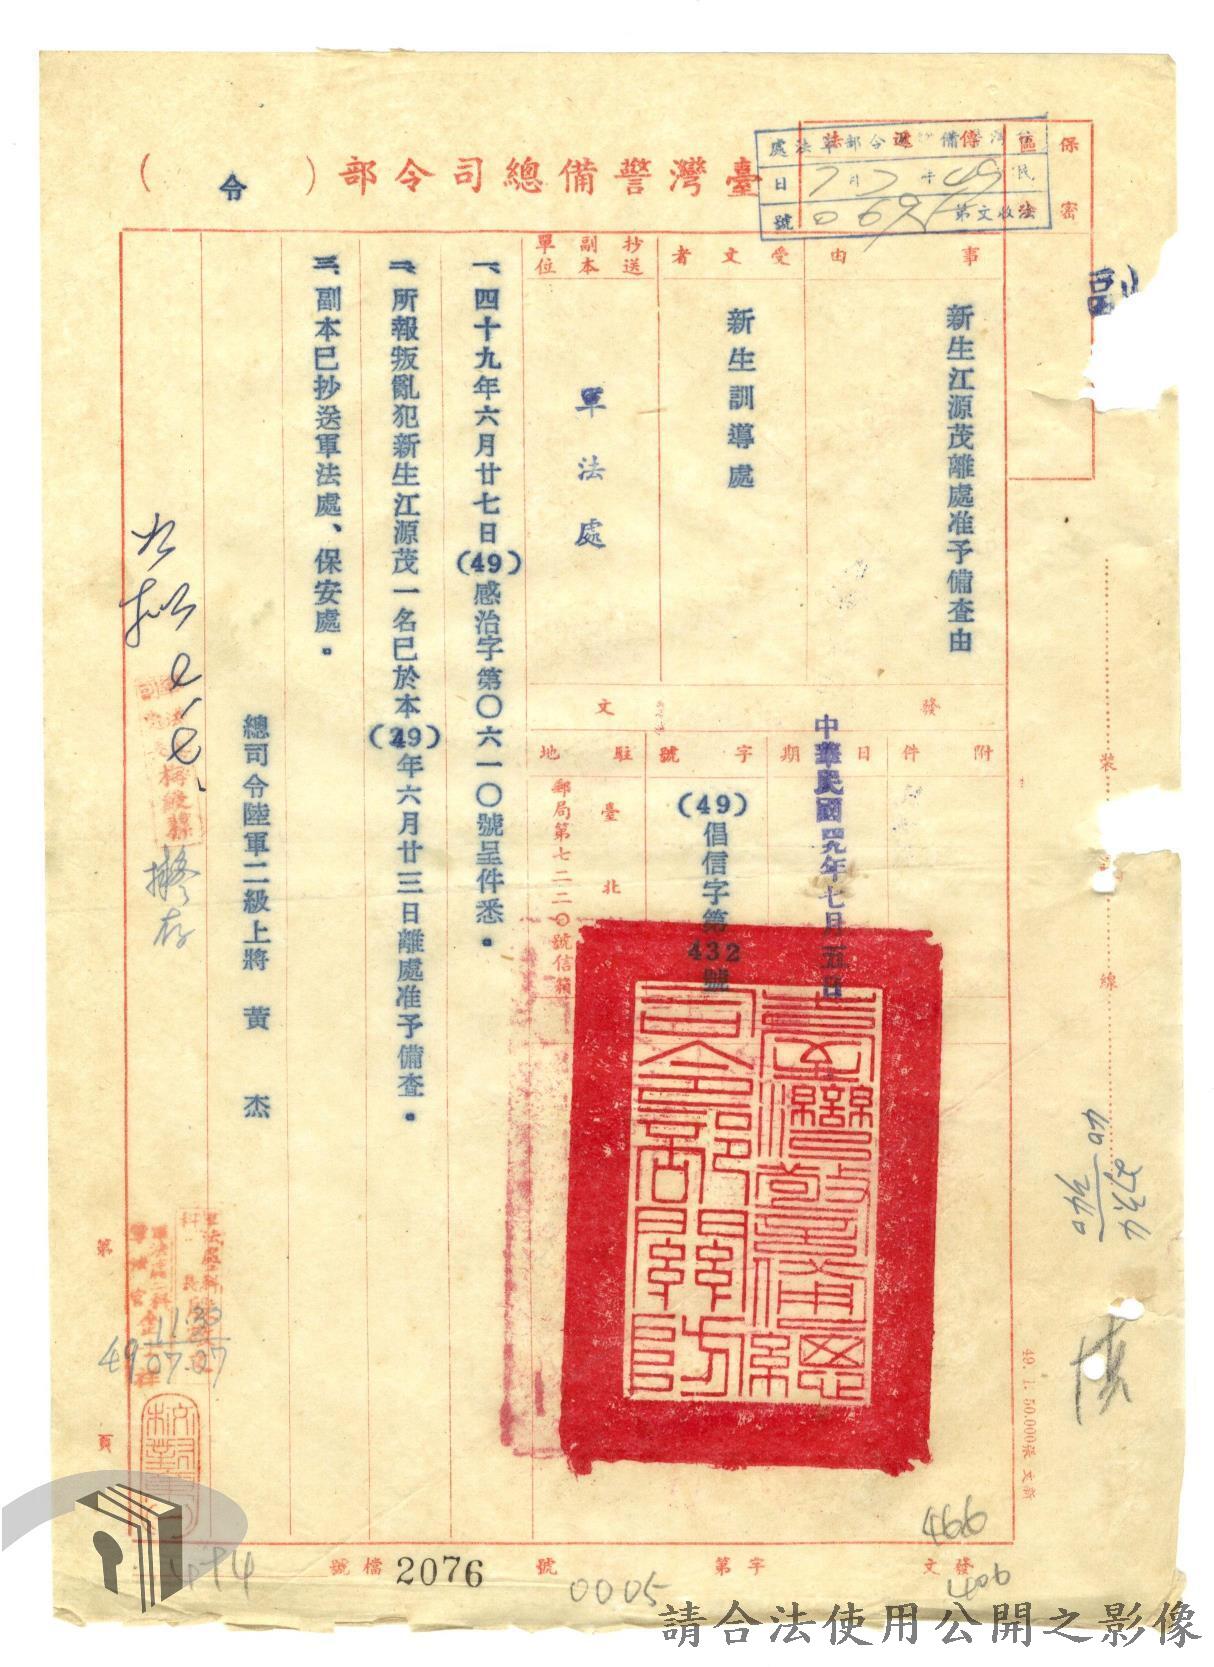 臺灣警備總司令部（令）
保密
區傳遞法
區法
臺灣警備總司令部軍法處
民49年7月7日
收文第069號
副
事由
新生江源茂離處准予備查由
受文者
新生訓導處
抄送副本單位
軍法處
發文
附件
日期
中華民國四九年七月五日
字號
(49)倡信字第432號
駐地
臺北
郵局第七二二〇號信箱
一、四十九年六月廿七日(49)感治字第〇六一〇號呈件悉。
二、所報叛亂犯新生江源茂一名已於本(49)年六月廿三日離處准予備查。
三、副本已抄送軍法處、保安處。
總司令陸軍二級上將 黃杰
臺灣警備總司令部關防
擬存
11.30
49.07.07
第
頁
裝
線
49.1.50.000張文新
發文
字第
號
檔號
2076
0005
466
406
請合法使用公開之影像